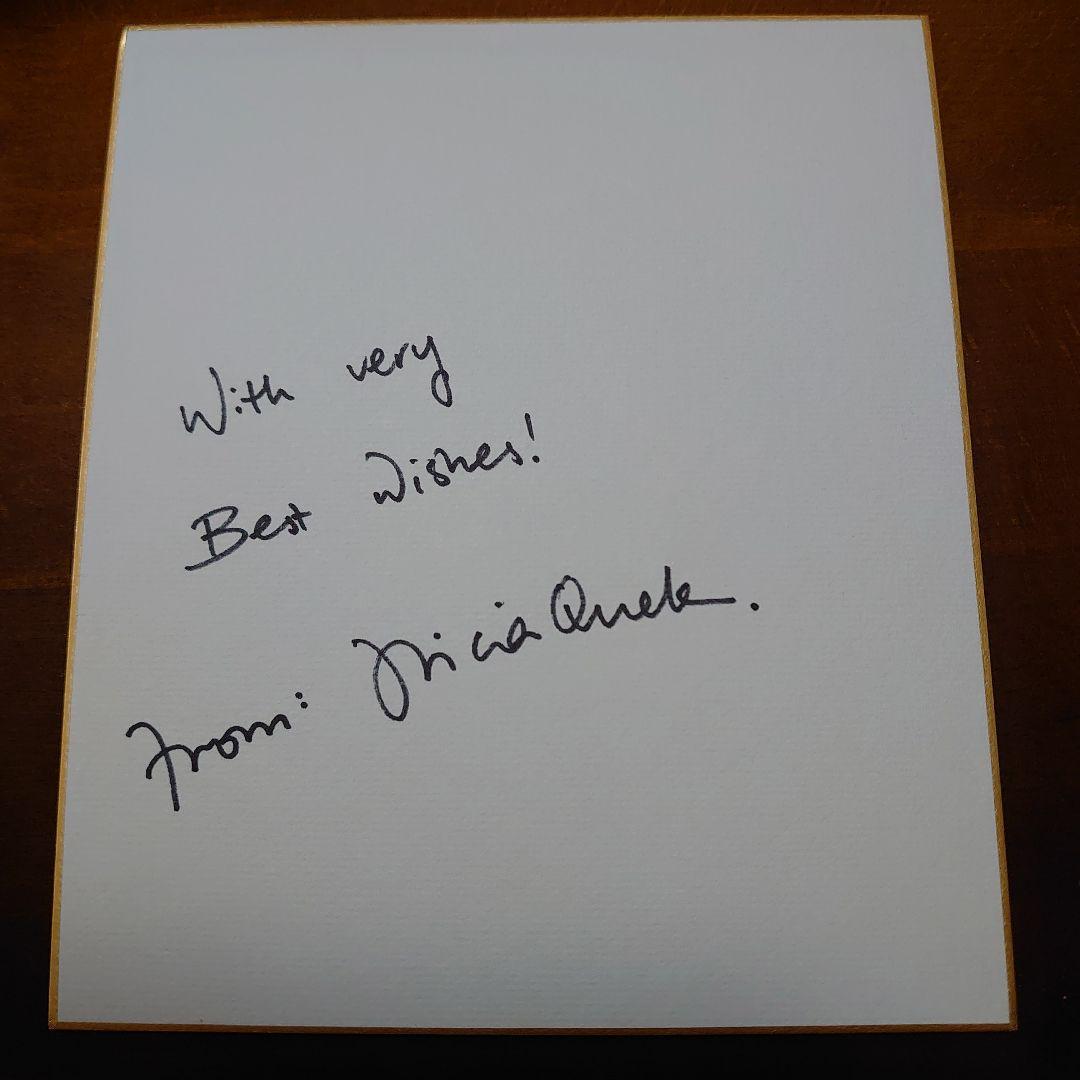 With very
Best Wishes!
From: Tricia Quek.